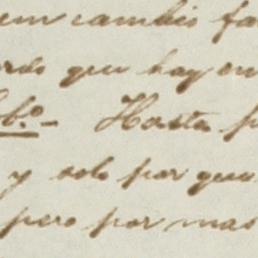 en cambio fa
rdo que hay en
b.o - Hasta p
y solo por que
pero por mas